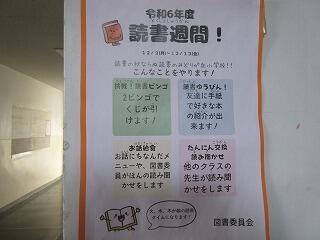 令和6年度
読書週間！
読書の秋ならぬ読書のみどりが丘小学校!!
こんなことをやります！
挑戦！読書ビンゴ
2ビンゴで
くじが引
けます！
読書ゆうびん！
友達に手紙
で好きな本
の紹介が出
来ます！
お話給食
お話にちなんだメ
ニューや、図書委
員がほんの読み聞
かせをします
たんにん交換
読み聞かせ
他のクラスの
先生が読み聞
かせをします
タイムになります！
図書委員会